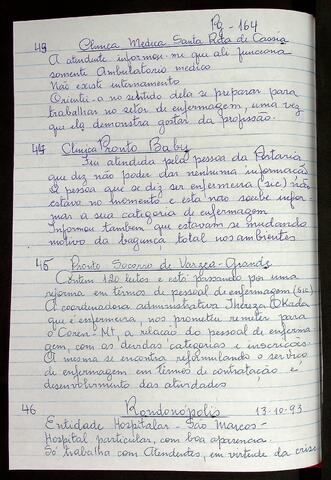 Pg - 164
43 Clinica Medica Santa Rita de Cassia
A atendente informou-me que ali funciona
somente Ambulatorio medico
Não existe internamento
Orientei-a no sentido dela se preparar para
trabalhar no setor de enfermagem, uma vez
que ela demonstra gostar da profissão.
44 Clinica Pronto Baby
Fui atendida pela pessoa da Portaria
que diz não poder dar nenhuma informação
A pessoa que se diz ser enfermeira (sic) não
estava no momento e esta não soube infor-
mar a sua categoria de enfermagem
Informou tambem que estavam se mudando
motivo da bagunça total nos ambientes
45 Pronto Socorro de Varzea-Grande
Contem 120 leitos e está passando por uma
reforma em termos de pessoal de enfermagem (sic)
A coordenadora administrativa Thereza Okada
que é enfermeira, nos prometeu remeter para
o Coren-Mt, a relação do pessoal de enferma
gem, com as devidas categorias e inscrições
A mesma se encontra reformulando o serviço
de enfermagem em termos de contratação e
desenvolvimento das atividades
46 Rondonopolis 13.10.93
Entidade Hospitalar - São Marcos -
Hospital particular, com boa aparencia.
Só trabalha com Atendentes, em virtude da crise